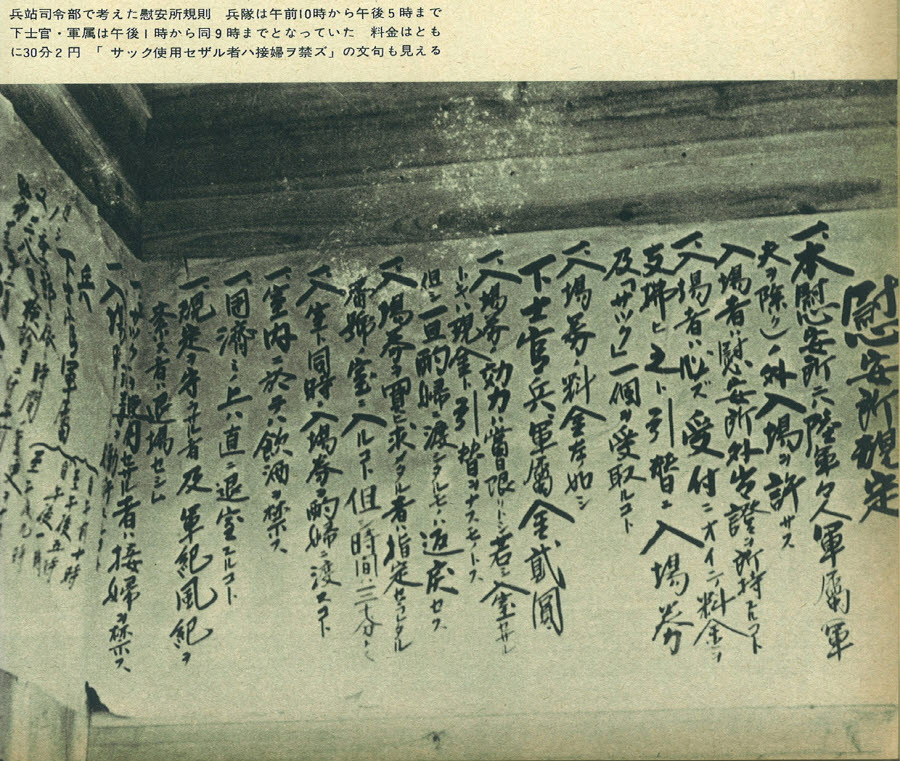 兵站司令部で考えた慰安所規則　兵隊は午前10時から午後5時まで
下士官・軍属は午後1時から同9時までとなっていた　料金はとも
に30分2円　「サック使用セザル者ハ接婦ヲ禁ズ」の文句も見える
慰安所規定
一、本慰安所ニハ陸軍々人軍属（軍
夫ヲ除ク）ノ外入場ヲ許サス
入場者ハ慰安所外出證ヲ所持スルコト
一、入場者ハ必ズ受付ニオイテ料金ヲ
支拂ヒ之ト引替ニ入場券
及「サック」一個ヲ受取ルコト
一、入場券ノ料金左ノ如シ
下士官兵軍属金貳圓
一、入場券ノ効力ハ當日限リトシ若シ入室セザル
トキハ現金ト引替ヲナスモノトス
但シ一旦酌婦ニ渡シタルモノハ返戻セス
一、入場券ヲ買ヒ求メタル者ハ指定セラレタル
番號ノ室ニ入ルコト但シ時間ハ三十分トス
一、入室ト同時ニ入場券ヲ酌婦ニ渡スコト
一、室内ニ於テハ飲酒ヲ禁ス
一、用済ミノ上ハ直ニ退室スルコト
一、規定ヲ守ラザル者及軍紀風紀ヲ
紊ス者ハ退場セシム
一、サックヲ使用セザル者ハ接婦ヲ禁ス
一、入場
兵
下士官軍属